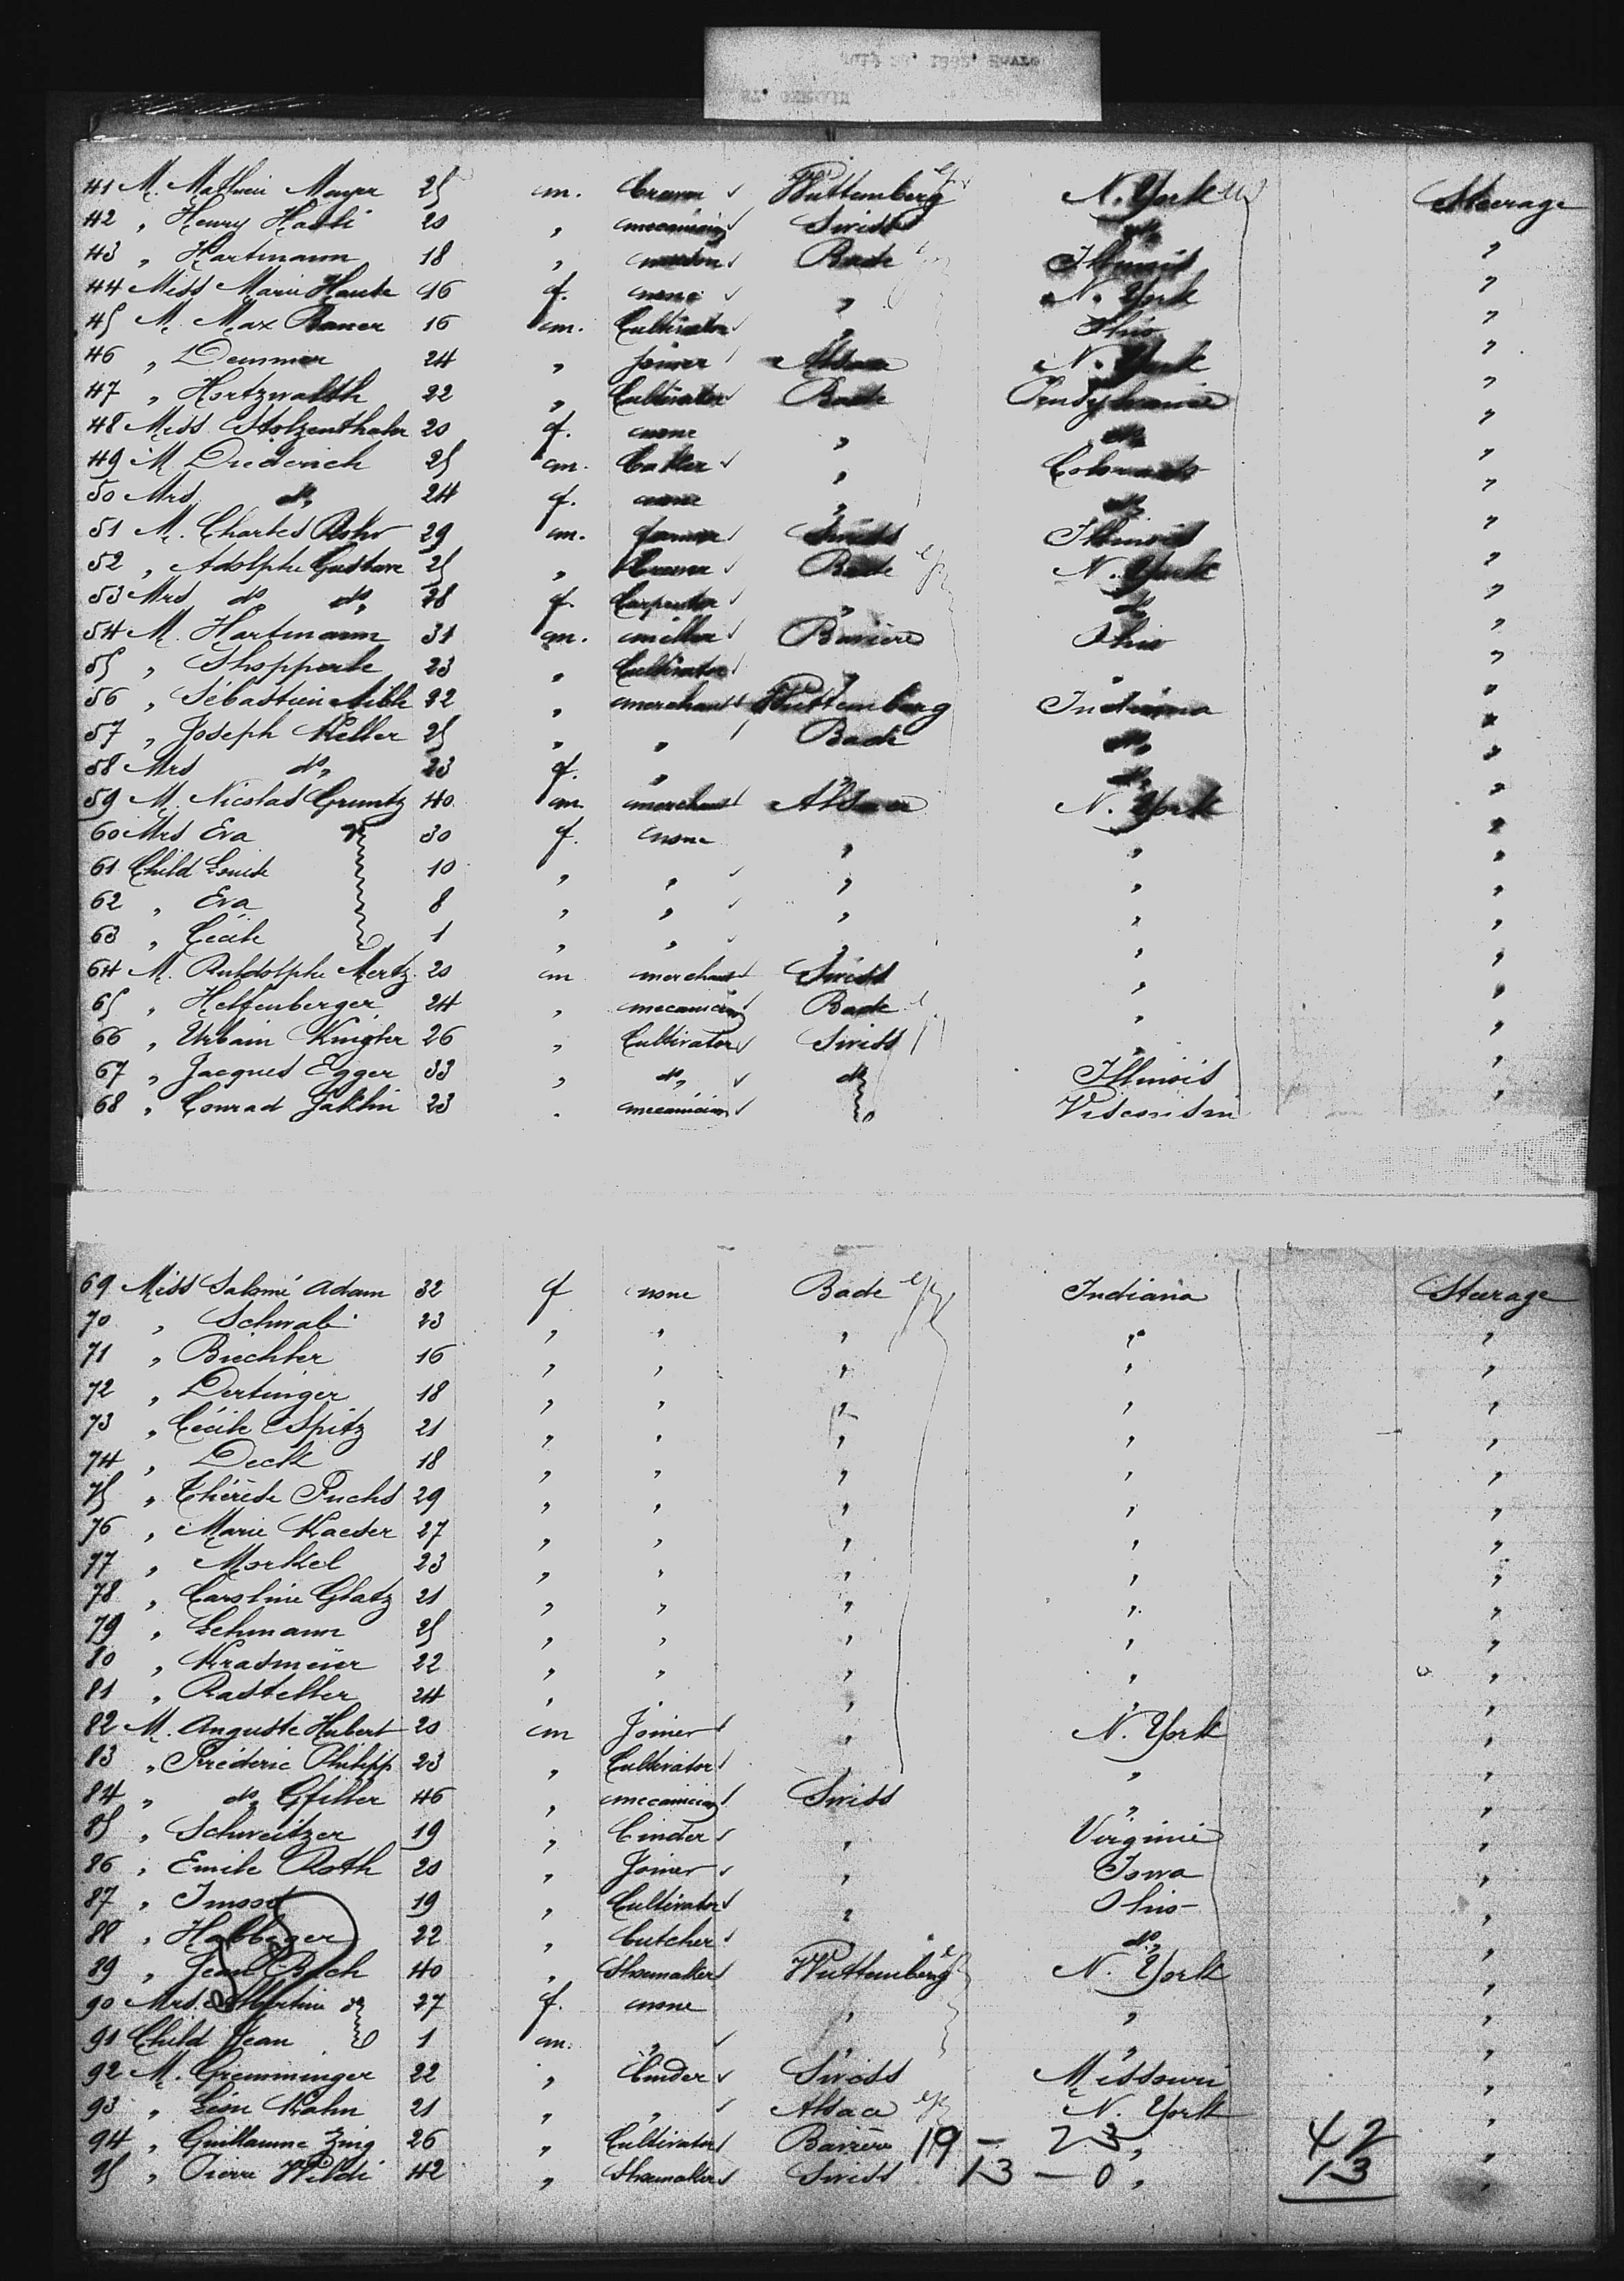 41 M. Mathieu Mayer 25 m. Wuttemberg N. York Steerage
42 " Henry 20 " mecanician Swiss do "
43 " Hartmann 18 " Bade Illinois "
44 Miss Marie Haute 16 f. none " N. York "
45 M. Max Bauer 16 m. Cultivator " Ohio "
46 " Demmer 24 " joiner Alsace N. York "
47 " Hertzwalth 22 " Cultivator Bade Pensylvanie "
48 Miss Stolzenthaler 20 f. none " do "
49 M. Diederich 25 m. " Colorado "
50 Mrs do 24 f. none " do "
51 M. Charles Rohr 29 m. farmer Swiss Illinois "
52 " Adolphe Gustave 25 " Bade N. York "
53 Mrs do do 28 f. Carpenter " do "
54 M. Hartmann 31 m. miller Bavière Ohio "
55 " Shopperle 23 " Cultivator " " "
56 " Sébastien 22 " merchant Wuttemberg Indiana "
57 " Joseph Keller 25 " " Bade do "
58 Mrs do 23 f. " " do "
59 M. Nicolas Gruntz 40 m. merchant Alsace N. York "
60 Mrs Eva " 30 f. none " " "
61 Child Louise 10 " " " " "
62 " Eva 8 " " " " "
63 " Cécile 1 " " " " "
64 M. Ruldolphe Mertz 20 m merchant Swiss " "
65 " Helfenberger 24 " mecanician Bade " "
66 " Urbain Kingler 26 " Cultivator Swiss " "
67 " Jacques Egger 33 " do do Illinois "
68 " Conrad Jaklin 23 " mecanician Visconsin "
69 Miss Salomé Adam 32 f none Bade Indiana Steerage
70 " Schwab 23 " " " " "
71 " Biechler 16 " " " " "
72 " Dertinger 18 " " " " "
73 " Cécile Spitz 21 " " " " "
74 " Deck 18 " " " " "
75 " Thérèse Fuchs 29 " " " " "
76 " Marie Kaeser 27 " " " " "
77 " Morkel 23 " " " " "
78 " Caroline Glatz 21 " " " " "
79 " Lehmann 25 " " " " "
80 " Krasmeier 22 " " " " "
81 " Rasteller 24 " " " "
82 M. Auguste Hubert 20 m Joiner " N. York "
83 " Fréderic Philipp 23 " Cultivator " " "
84 " do Gfiller 46 " mecanician Swiss " "
85 " Schweitzer 19 " Binder " Virginie "
86 " Emile Roth 20 " Joiner " Iowa "
87 " Imosd 19 " Cultivator " Ohio "
88 " 22 " butcher do "
89 " Jean Bach 40 " Shoemaker Wuttemberg N. York "
90 Mrs. do 27 f. none " " "
91 Child Jean 1 m. " " " "
92 M. Gremminger 22 " Binder Swiss Missouri "
93 " Léon Kahn 21 " " Alsace N. York "
94 " Guillaume Zing 26 " Cultivator Bavière 19 - 23 " 42 "
95 " Pierre Wildi 42 " Shoemaker Swiss 13 - 0 " 13 "